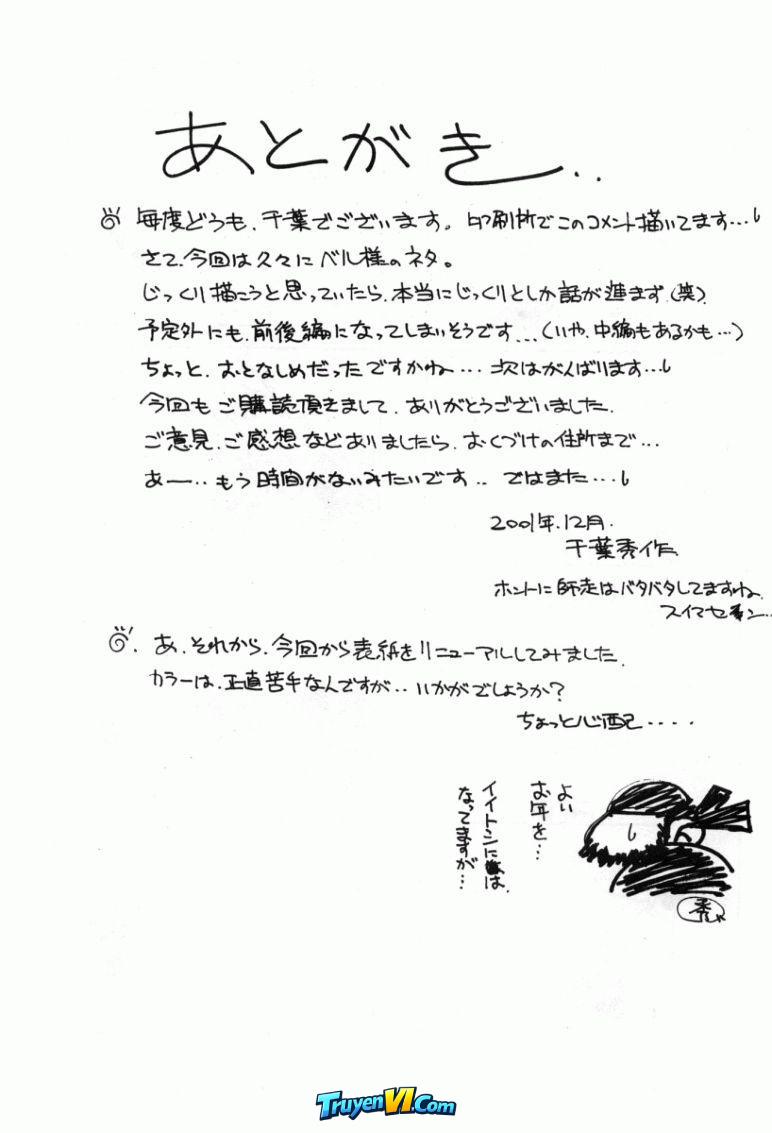 あとがき..
毎度どうも、千葉でございます。印刷所でこのコメント描いてます…
さて、今回は久々にベル様のネタ。
じっくり描こうと思っていたら、本当にじっくりとしか話が進まず(笑).
予定外にも、前後編になってしまいそうです…(いや、中編もあるかも…)
ちょっと、おとなしめだったですかね… 次はがんばります…
今回もご購読頂きまして、ありがとうございました.
ご意見、ご感想などありましたら、おくづけの住所まで…
あー‥もう時間がないみたいです‥ ではまた…
2001年.12月.
千葉秀作
ホントに師走はバタバタしてますね.
スイマセン…
あ、それから、今回から表紙をリニューアルしてみました.
カラーは、正直苦手なんですが‥いかがでしょうか?
ちょっと心配‥‥
よい
お年を…
イイトシに
なってますが…
秀
TruyenVI.Com